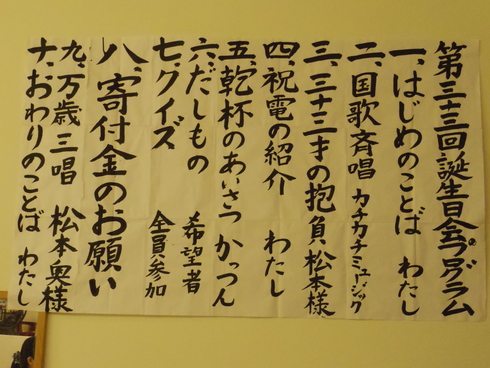 第三十三回誕生日会プログラム
一、はじめのことば わたし
二、国歌斉唱 カチカチミュージック
三、三十三才の抱負 松本様
四、祝電の紹介 わたし
五、乾杯のあいさつ かっつん
六、だしもの 希望者
七、クイズ 全員参加
八、寄付金のお願い
九、万歳三唱 松本奥様
十、おわりのことば わたし